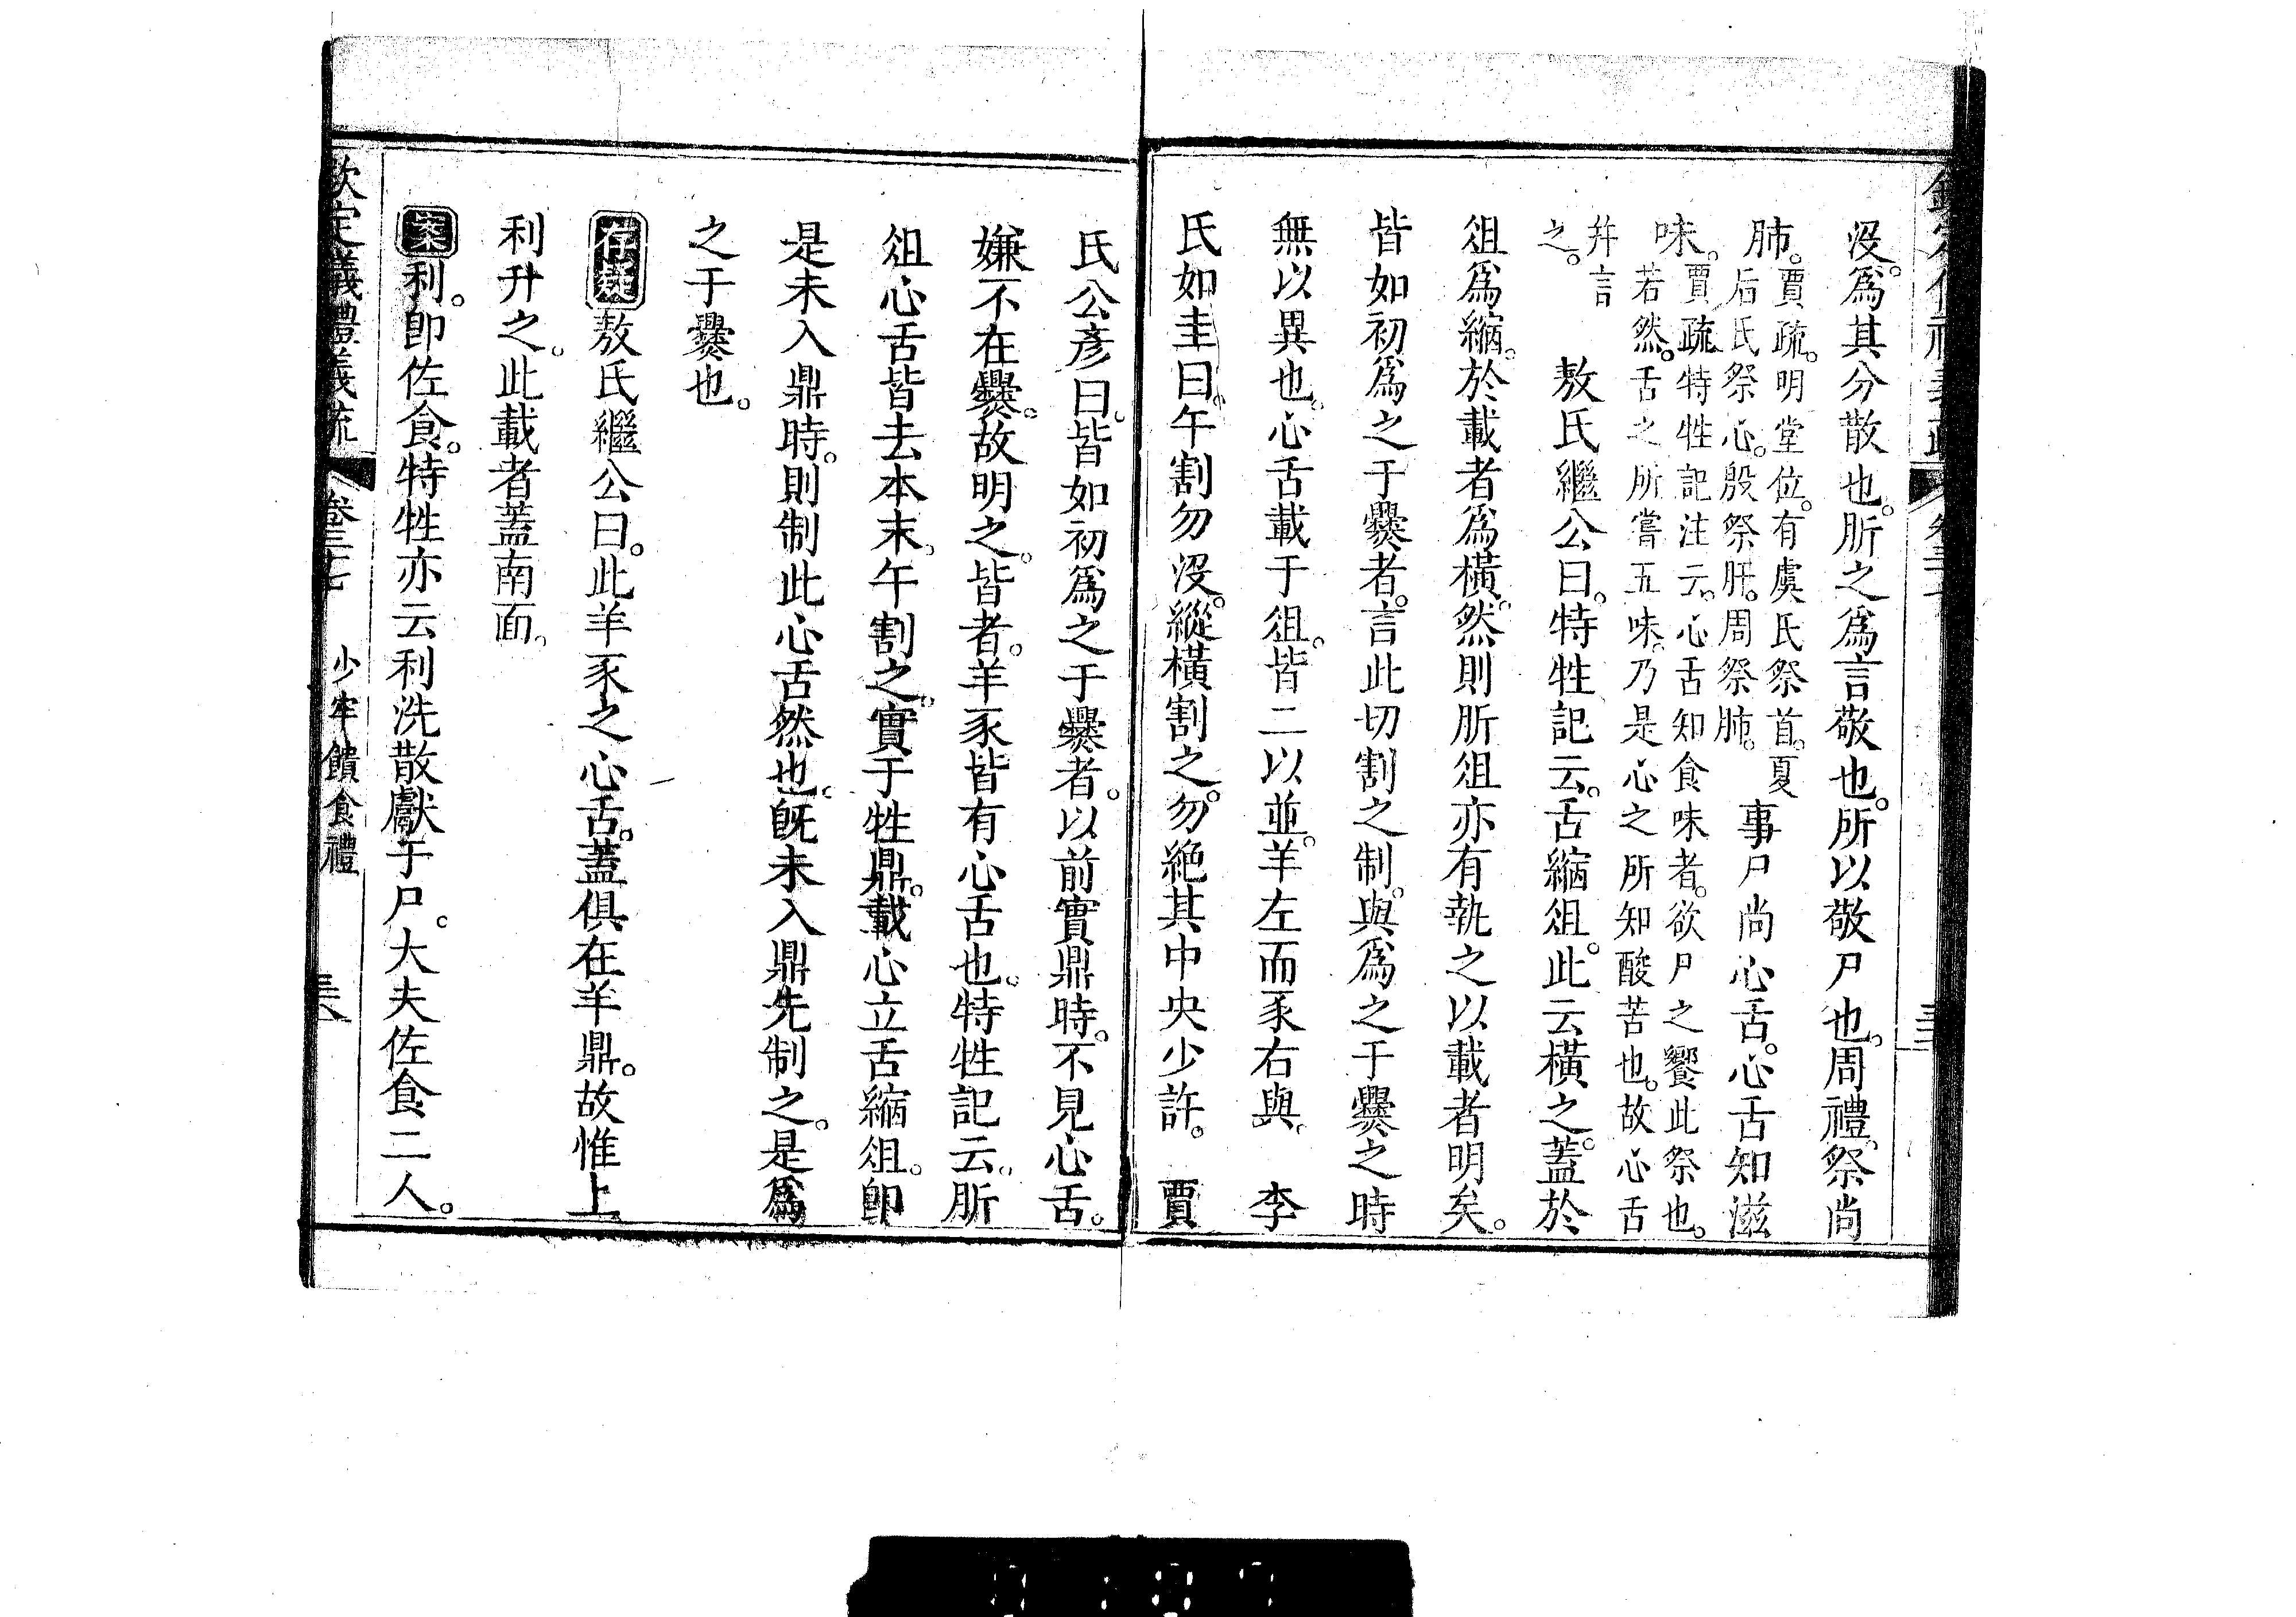 沒。爲其分散也。肵之爲言敬也。所以敬尸也。周禮。祭尚
肺。賈疏。明堂位。有虞氏祭首。夏后氏祭心。殷祭肝。周祭肺。事尸尚心舌。心舌知滋
味。賈疏。特牲記注云。心舌知食味者。欲尸之饗此祭也。若然。舌之所嘗五味。乃是心之所知酸苦也。故心舌
幷言之。敖氏繼公曰。特牲記云。舌縮俎。此云橫之。蓋於
俎爲縮。於載者爲橫。然則肵俎亦有執之以載者明矣。
皆如初爲之于爨者。言此切割之制。與爲之于爨之時
無以異也。心舌載于俎。皆二以並。羊左而豕右與。李
氏如圭曰。午割勿沒。縱橫割之。勿絕其中央少許。賈
氏公彥曰。皆如初爲之于爨者。以前實鼎時。不見心舌。
嫌不在爨。故明之。皆者。羊豕皆有心舌也。特牲記云。肵
俎心舌皆去本末。午割之。實于牲鼎。載心立舌縮俎。卽
是未入鼎時。則制此心舌然也。旣未入鼎先制之。是爲
之于爨也。
存疑敖氏繼公曰。此羊豕之心舌。蓋俱在羊鼎。故惟上
利升之。此載者蓋南面。
案利。卽佐食。特牲亦云利洗散獻于尸。大夫佐食二人。
欽定儀禮義疏 卷三十七 少牢饋食禮